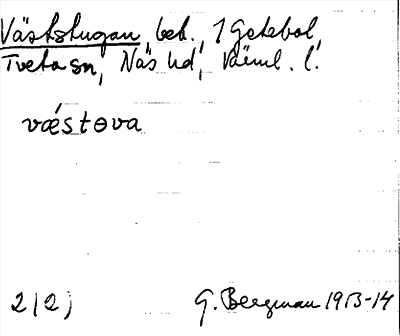 Väststugan beb., 1 Getebol,
Tveta sn, Näs hd, Värml. l.
væ´stɵva
2/2) G. Bergman 1913-14